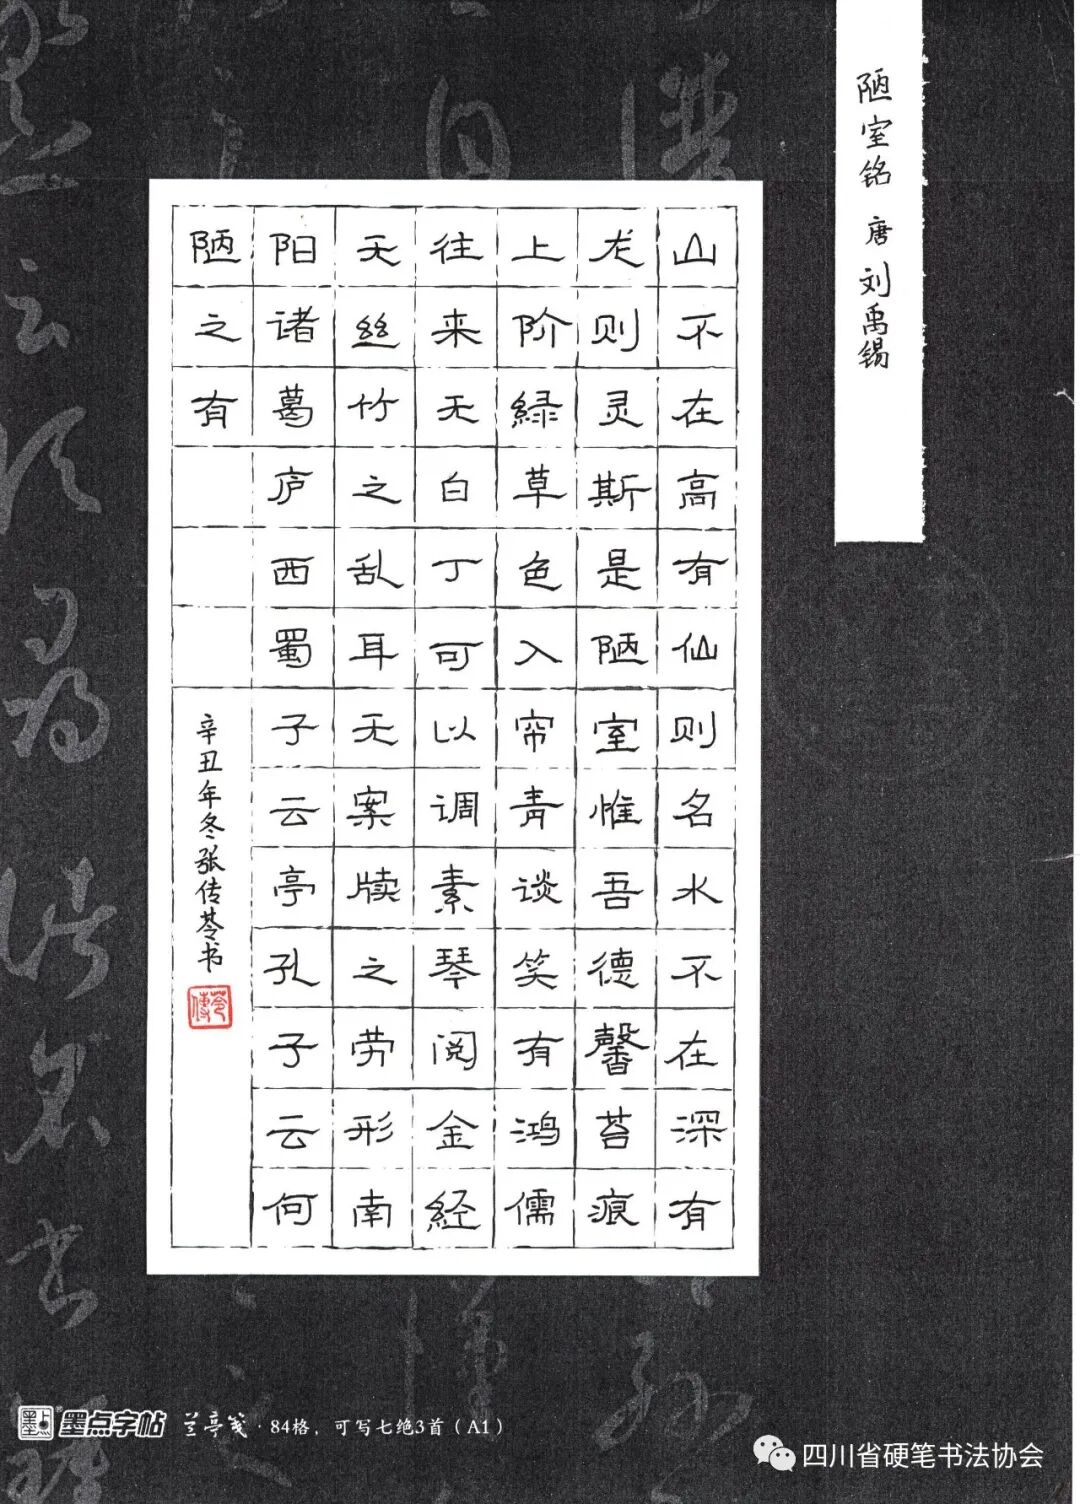 陋室铭 唐 刘禹锡
山不在高有仙则名水不在深有
龙则灵斯是陋室惟吾德馨苔痕
上阶緑草色入帘青谈笑有鸿儒
往来无白丁可以调素琴阅金经
无丝竹之乱耳无案牍之劳形南
阳诸葛庐西蜀子云亭孔子云何
陋之有
辛丑年冬张传苓书
苓傳
墨点 墨点字帖 兰亭笺·84格，可写七绝3首（A1）
四川省硬笔书法协会